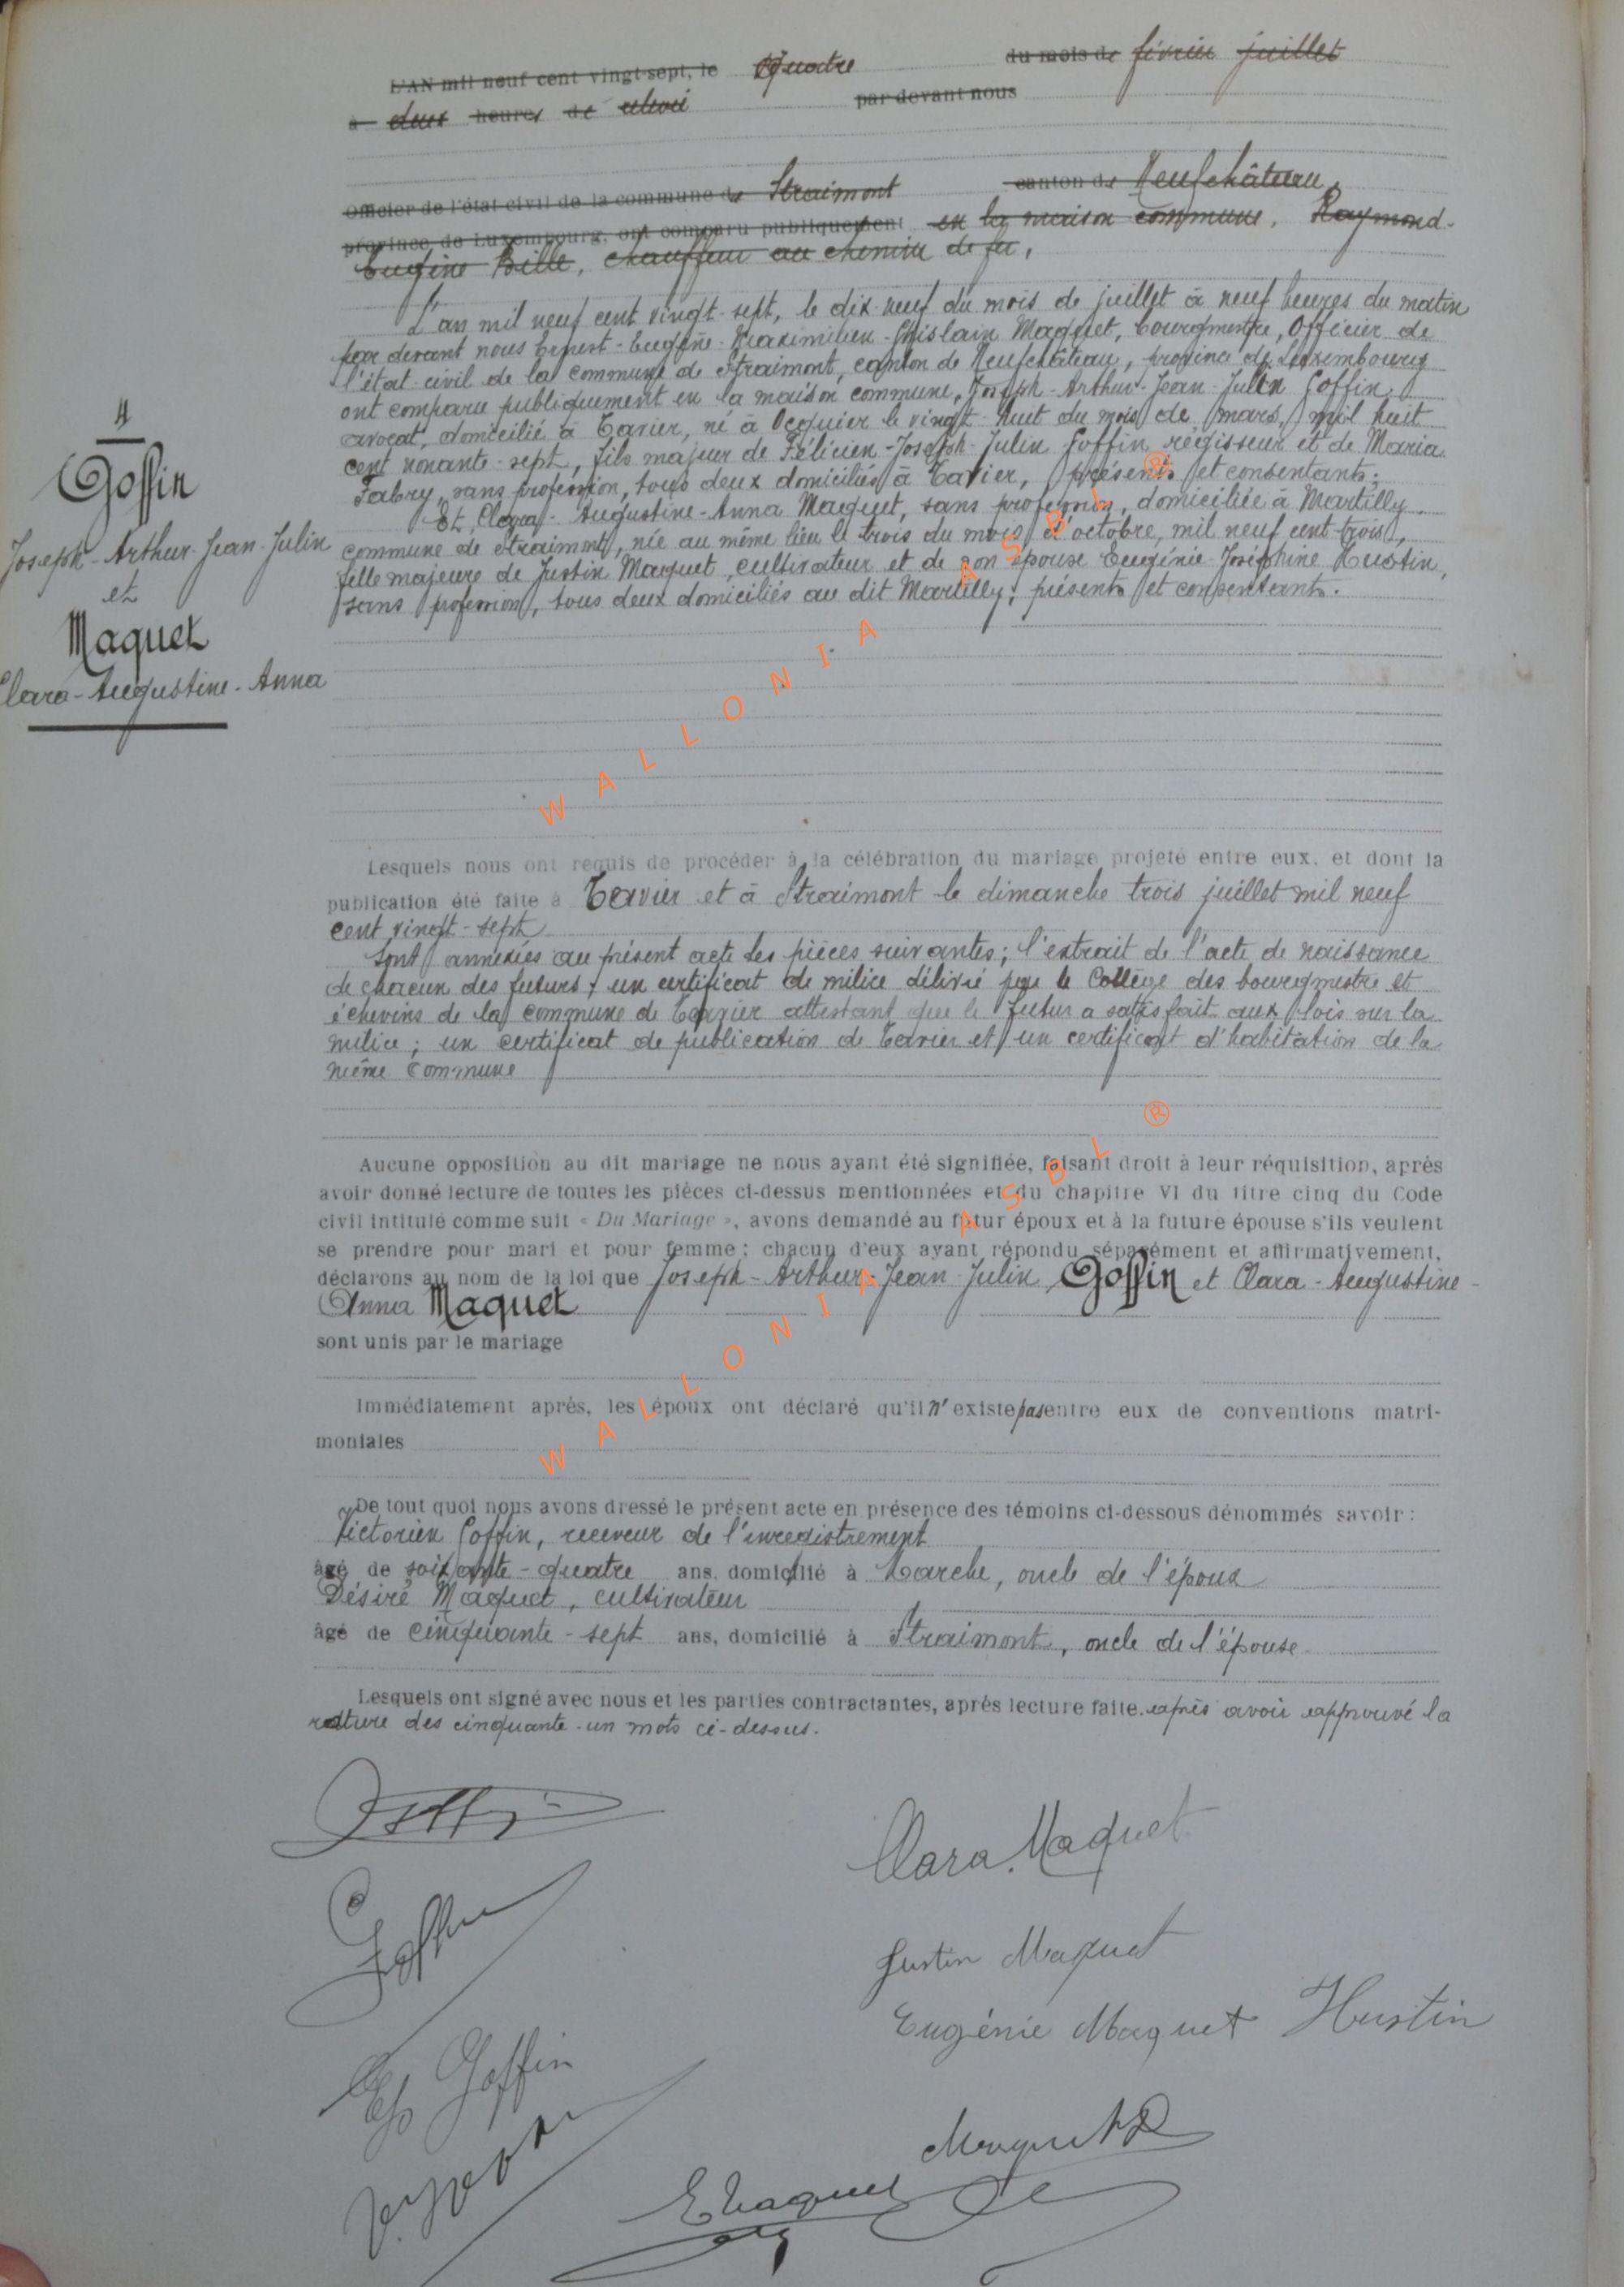 L'AN mil neuf cent vingt-sept, le Quatre du mois de février juillet
à deux heures de relevée par devant nous
Officier de l'état civil de la commune de Straimont canton de Neufchâteau,
province de Luxembourg, ont comparu publiquement en la maison commune, Raymond-
Eugène Bille, chauffeur au chemin de fer,
L'an mil neuf cent vingt-sept, le dix-neuf du mois de juillet à neuf heures du matin
par devant nous Ernest-Eugène-Maximilien-Ghislain Maquet, bourgmestre, Officier de
l'état civil de la commune de Straimont, canton de Neufchâteau, province de Luxembourg
ont comparu publiquement en la maison commune, Joseph-Arthur-Jean-Julin Goffin,
avocat, domicilié à Tavier, né à Ocquier le vingt-huit du mois de mars, mil huit
cent nonante-sept, fils majeur de Félicien-Joseph-Julin Goffin régisseur et de Maria
Fabry, sans profession, tous deux domiciliés à Tavier, présents et consentants;
Et Clara-Augustine-Anna Maquet, sans profession, domiciliée à Martilly
commune de Straimont, née au même lieu le trois du mois d'octobre, mil neuf cent trois,
fille majeure de Justin Maquet, cultivateur et de son épouse Eugénie-Joséphine Hustin,
sans profession, tous deux domiciliés au dit Martilly, présents et consentants.
4
Goffin
Joseph-Arthur-Jean-Julin
et
Maquet
Clara-Augustine-Anna
Lesquels nous ont requis de procéder à la célébration du mariage projeté entre eux, et dont la
publication été faite à Tavier et à Straimont le dimanche trois juillet mil neuf
cent vingt-sept
Sont annexées au présent acte les pièces suivantes; l'extrait de l'acte de naissance
de chacun des futurs; un certificat de milice délivré par le Collège des bourgmestre et
échevins de la commune de Tavier attestant que le futur a satisfait aux lois sur la
milice; un certificat de publication de Tavier et un certificat d'habitation de la
même commune
Aucune opposition au dit mariage ne nous ayant été signifiée, faisant droit à leur réquisition, après
avoir donné lecture de toutes les pièces ci-dessus mentionnées et du chapitre VI du titre cinq du Code
civil intitulé comme suit « Du Mariage », avons demandé au futur époux et à la future épouse s'ils veulent
se prendre pour mari et pour femme; chacun d'eux ayant répondu séparément et affirmativement,
déclarons au nom de la loi que Joseph-Arthur-Jean-Julin Goffin et Clara-Augustine-
Anna Maquet
sont unis par le mariage
Immédiatement après, les époux ont déclaré qu'il n'existe pas entre eux de conventions matri-
moniales
De tout quoi nous avons dressé le présent acte en présence des témoins ci-dessous dénommés savoir :
Victorien Goffin, receveur de l'enregistrement
âgé de soixante-quatre ans, domicilié à Marche, oncle de l'époux
Désiré Maquet, cultivateur
âgé de cinquante-sept ans, domicilié à Straimont, oncle de l'épouse.
Lesquels ont signé avec nous et les parties contractantes, après lecture faite. après avoir approuvé la
rature des cinquante-un mots ci-dessus.
Clara Maquet
Goffin
Justin Maquet
Eugénie Maquet Hustin
Goffin
Maquet D
E Maquet
WALLONIA ASBL ®
WALLONIA ASBL ®